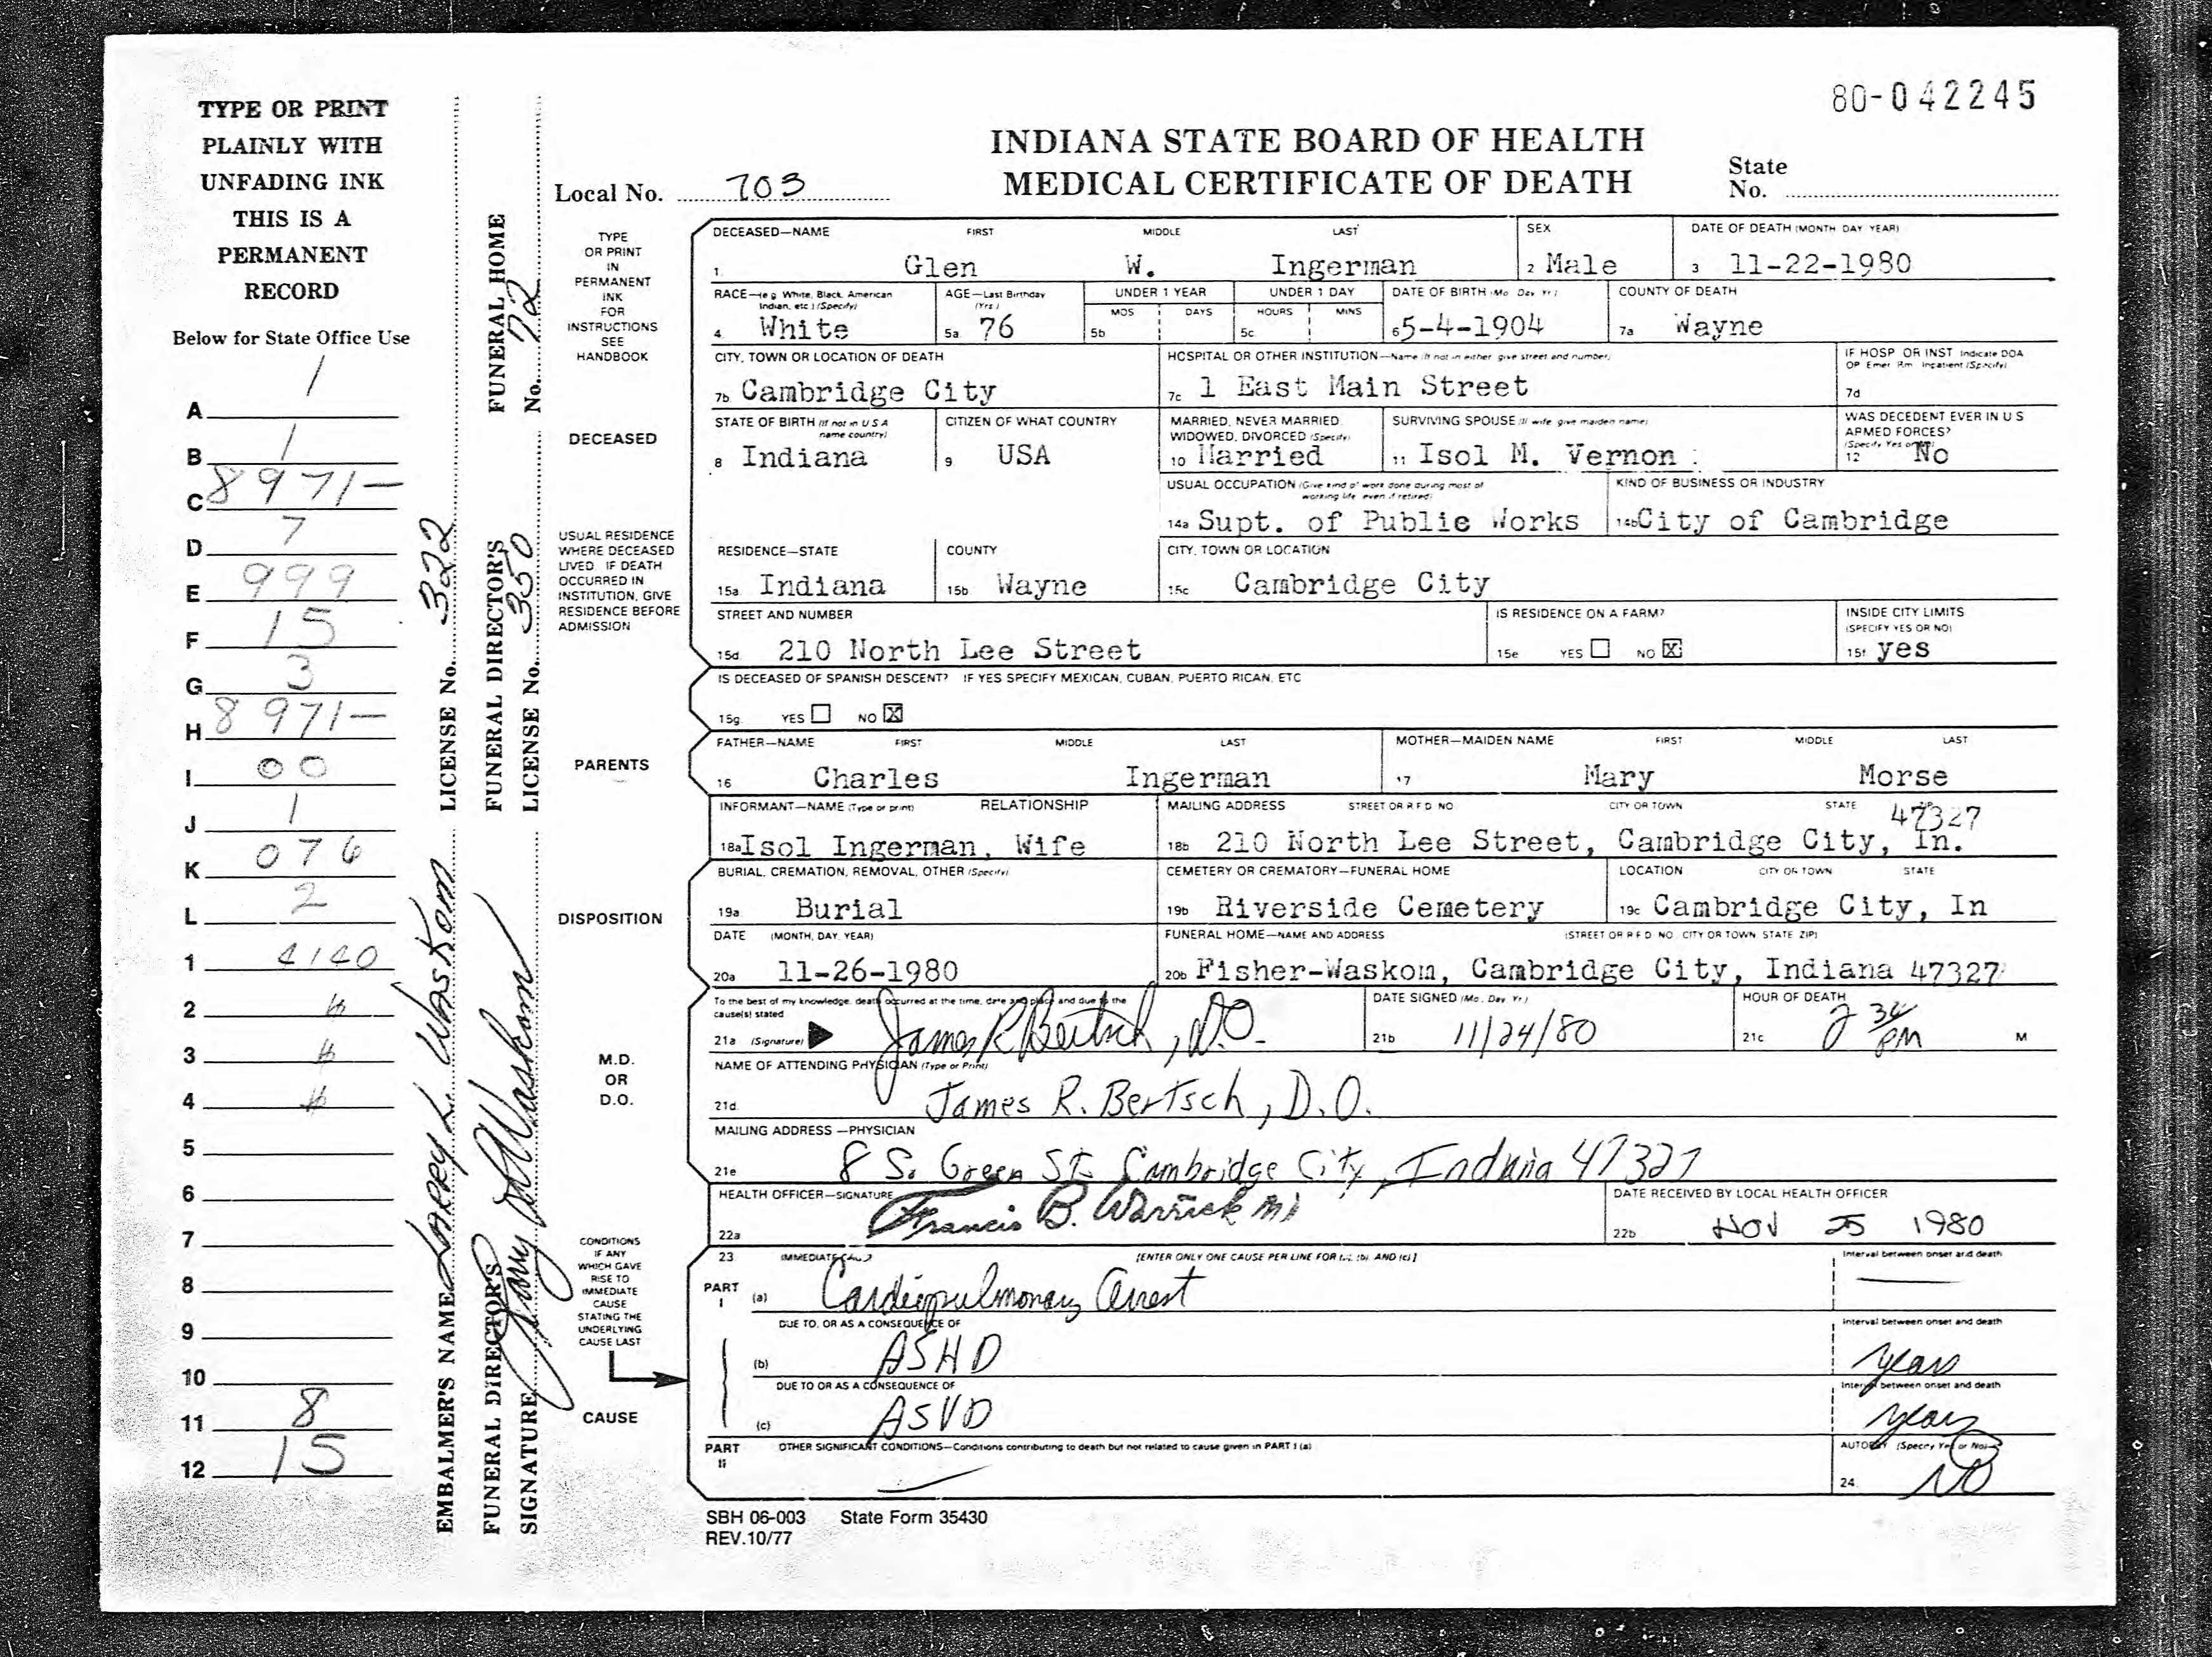 80-042245
TYPE OR PRINT
PLAINLY WITH
UNFADING INK
THIS IS A
PERMANENT
RECORD
Below for State Office Use
A 1
B 1
C 8971-
D 7
E 999
F 15
G 3
H 8971-
I 00
J 1
K 076
L 2
1 4140
2
3
4
5
6
7
8
9
10
11 8
12 15
EMBALMER'S NAME LARRY L. WASKOM LICENSE No. 322
FUNERAL DIRECTOR'S
SIGNATURE
FUNERAL DIRECTOR'S
LICENSE No. 350
FUNERAL HOME
No. 72
INDIANA STATE BOARD OF HEALTH
MEDICAL CERTIFICATE OF DEATH
Local No. 703
State
No.
TYPE
OR PRINT
IN
PERMANENT
INK
FOR
INSTRUCTIONS
SEE
HANDBOOK
DECEASED
USUAL RESIDENCE
WHERE DECEASED
LIVED IF DEATH
OCCURRED IN
INSTITUTION, GIVE
RESIDENCE BEFORE
ADMISSION
PARENTS
DISPOSITION
M.D.
OR
D.O.
CONDITIONS
IF ANY
WHICH GAVE
RISE TO
IMMEDIATE
CAUSE
STATING THE
UNDERLYING
CAUSE LAST
CAUSE
DECEASED—NAME FIRST MIDDLE LAST SEX DATE OF DEATH (MONTH DAY YEAR)
1. Glen W. Ingerman 2 Male 3 11-22-1980
RACE—(e g White, Black, American Indian, etc.) (Specify) AGE—Last Birthday (Yrs) UNDER 1 YEAR UNDER 1 DAY DATE OF BIRTH (Mo Day Yr) COUNTY OF DEATH
MOS DAYS HOURS MINS
4 White 5a 76 5b 5c 6 5-4-1904 7a Wayne
CITY, TOWN OR LOCATION OF DEATH HOSPITAL OR OTHER INSTITUTION—Name (If not in either give street and number) IF HOSP OR INST Indicate DOA OP Emer Rm Inpatient (Specify)
7b Cambridge City 7c 1 East Main Street 7d
STATE OF BIRTH (If not in U S A name country) CITIZEN OF WHAT COUNTRY MARRIED, NEVER MARRIED, WIDOWED, DIVORCED (Specify) SURVIVING SPOUSE (If wife give maiden name) WAS DECEDENT EVER IN U S ARMED FORCES? (Specify Yes or No)
8 Indiana 9 USA 10 Married 11 Isol M. Vernon 12 No
USUAL OCCUPATION (Give kind of work done during most of working life even if retired) KIND OF BUSINESS OR INDUSTRY
14a Supt. of Public Works 14b City of Cambridge
RESIDENCE—STATE COUNTY CITY, TOWN OR LOCATION
15a Indiana 15b Wayne 15c Cambridge City
STREET AND NUMBER IS RESIDENCE ON A FARM? INSIDE CITY LIMITS (SPECIFY YES OR NO)
15d 210 North Lee Street 15e YES NO X 15f yes
IS DECEASED OF SPANISH DESCENT? IF YES SPECIFY MEXICAN, CUBAN, PUERTO RICAN, ETC
15g YES NO X
FATHER—NAME FIRST MIDDLE LAST MOTHER—MAIDEN NAME FIRST MIDDLE LAST
16 Charles Ingerman 17 Mary Morse
INFORMANT—NAME (Type or print) RELATIONSHIP MAILING ADDRESS STREET OR R F D NO CITY OR TOWN STATE ZIP
47327
18a Isol Ingerman, Wife 18b 210 North Lee Street, Cambridge City, In.
BURIAL, CREMATION, REMOVAL, OTHER (Specify) CEMETERY OR CREMATORY—FUNERAL HOME LOCATION CITY OR TOWN STATE
19a Burial 19b Riverside Cemetery 19c Cambridge City, In
DATE (MONTH, DAY, YEAR) FUNERAL HOME—NAME AND ADDRESS (STREET OR R F D NO CITY OR TOWN STATE ZIP)
20a 11-26-1980 20b Fisher-Waskom, Cambridge City, Indiana 47327
To the best of my knowledge, death occurred at the time, date and place and due to the cause(s) stated DATE SIGNED (Mo, Day, Yr) HOUR OF DEATH
21a (Signature) James R Bertsch, D.O. 21b 11/24/80 21c 2 34 PM M
NAME OF ATTENDING PHYSICIAN (Type or Print)
21d James R. Bertsch, D.O.
MAILING ADDRESS—PHYSICIAN
21e 8 S. Green St. Cambridge City, Indiana 47327
HEALTH OFFICER—SIGNATURE DATE RECEIVED BY LOCAL HEALTH OFFICER
22a Francis B. Warrick MD 22b NOV 25 1980
23 IMMEDIATE CAUSE [ENTER ONLY ONE CAUSE PER LINE FOR (a), (b), AND (c)] Interval between onset and death
PART I (a) Cardiopulmonary Arrest —
DUE TO, OR AS A CONSEQUENCE OF Interval between onset and death
(b) ASHD years
DUE TO OR AS A CONSEQUENCE OF Interval between onset and death
(c) ASVD years
PART II OTHER SIGNIFICANT CONDITIONS—Conditions contributing to death but not related to cause given in PART I (a) AUTOPSY (Specify Yes or No)
— 24 NO
SBH 06-003 State Form 35430
REV.10/77